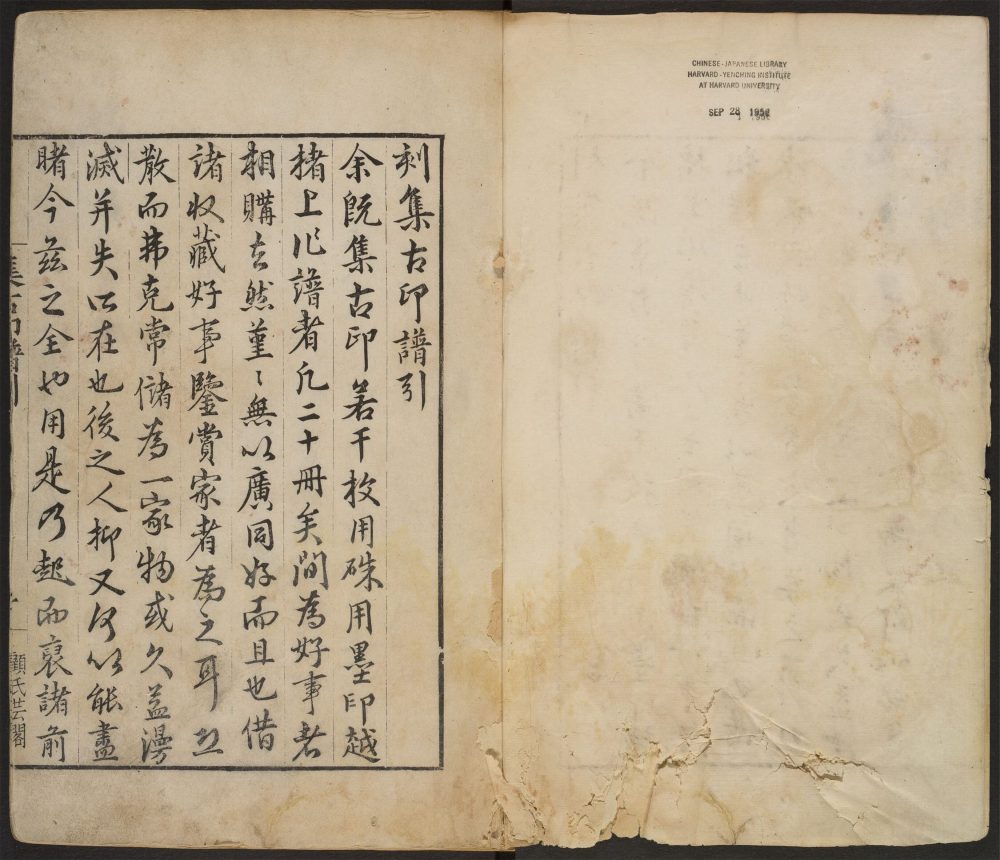 CHINESE-JAPANESE LIBRARY
HARVARD-YENCHING INSTITUTE
AT HARVARD UNIVERSITY
SEP 28 1956
刻集古印譜引
余既集古印若干枚用硃用墨印越
楮上作譜者凡二十冊矣間為好事者
相購去然菫〻無以廣同好而且也借
諸收藏好事鑒賞家者為之耳
散而弗克常儲為一家物或久益漫
滅并失所在也後之人抑又何以能盡
睹今茲之全也用是乃起而裒諸前
集古印譜引
顧氏芸閣